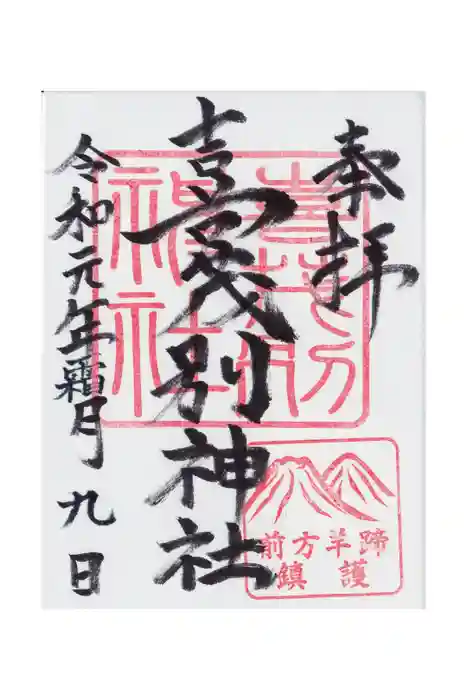 奉拝
喜茂別神社
令和元年霜月九日
喜茂別
神社
前方羊蹄
鎮護